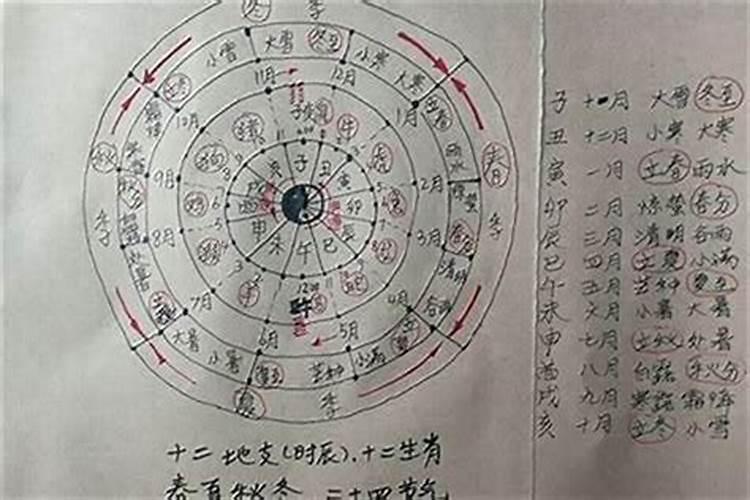 冬 季
小雪 大雪 冬至 小寒 大寒
11月 12月
立冬 立春
10月 1月
子 丑 寅 卯 辰 巳 午 未 申 酉 戌 亥
秋 春
季 季
9月 2月
雨水
惊蛰
秋分 春分
8月 3月
清明
谷雨
7月 4月
大暑 小暑 夏至 芒种 小满
6月 5月
夏 季
子 十一月 大雪 冬至
丑 十二月 小寒 大寒
寅 一月 立春 雨水
卯 二月 惊蛰 春分
辰 三月 清明 谷雨
巳 四月 立夏 小满
午 五月 芒种 夏至
未 六月 小暑 大暑
申 七月 立秋 处暑
酉 八月 白露 秋分
戌 九月 寒露 霜降
亥 十月 立冬 小雪
十二地支(时辰)、十二生肖
春夏秋冬 二十四节气